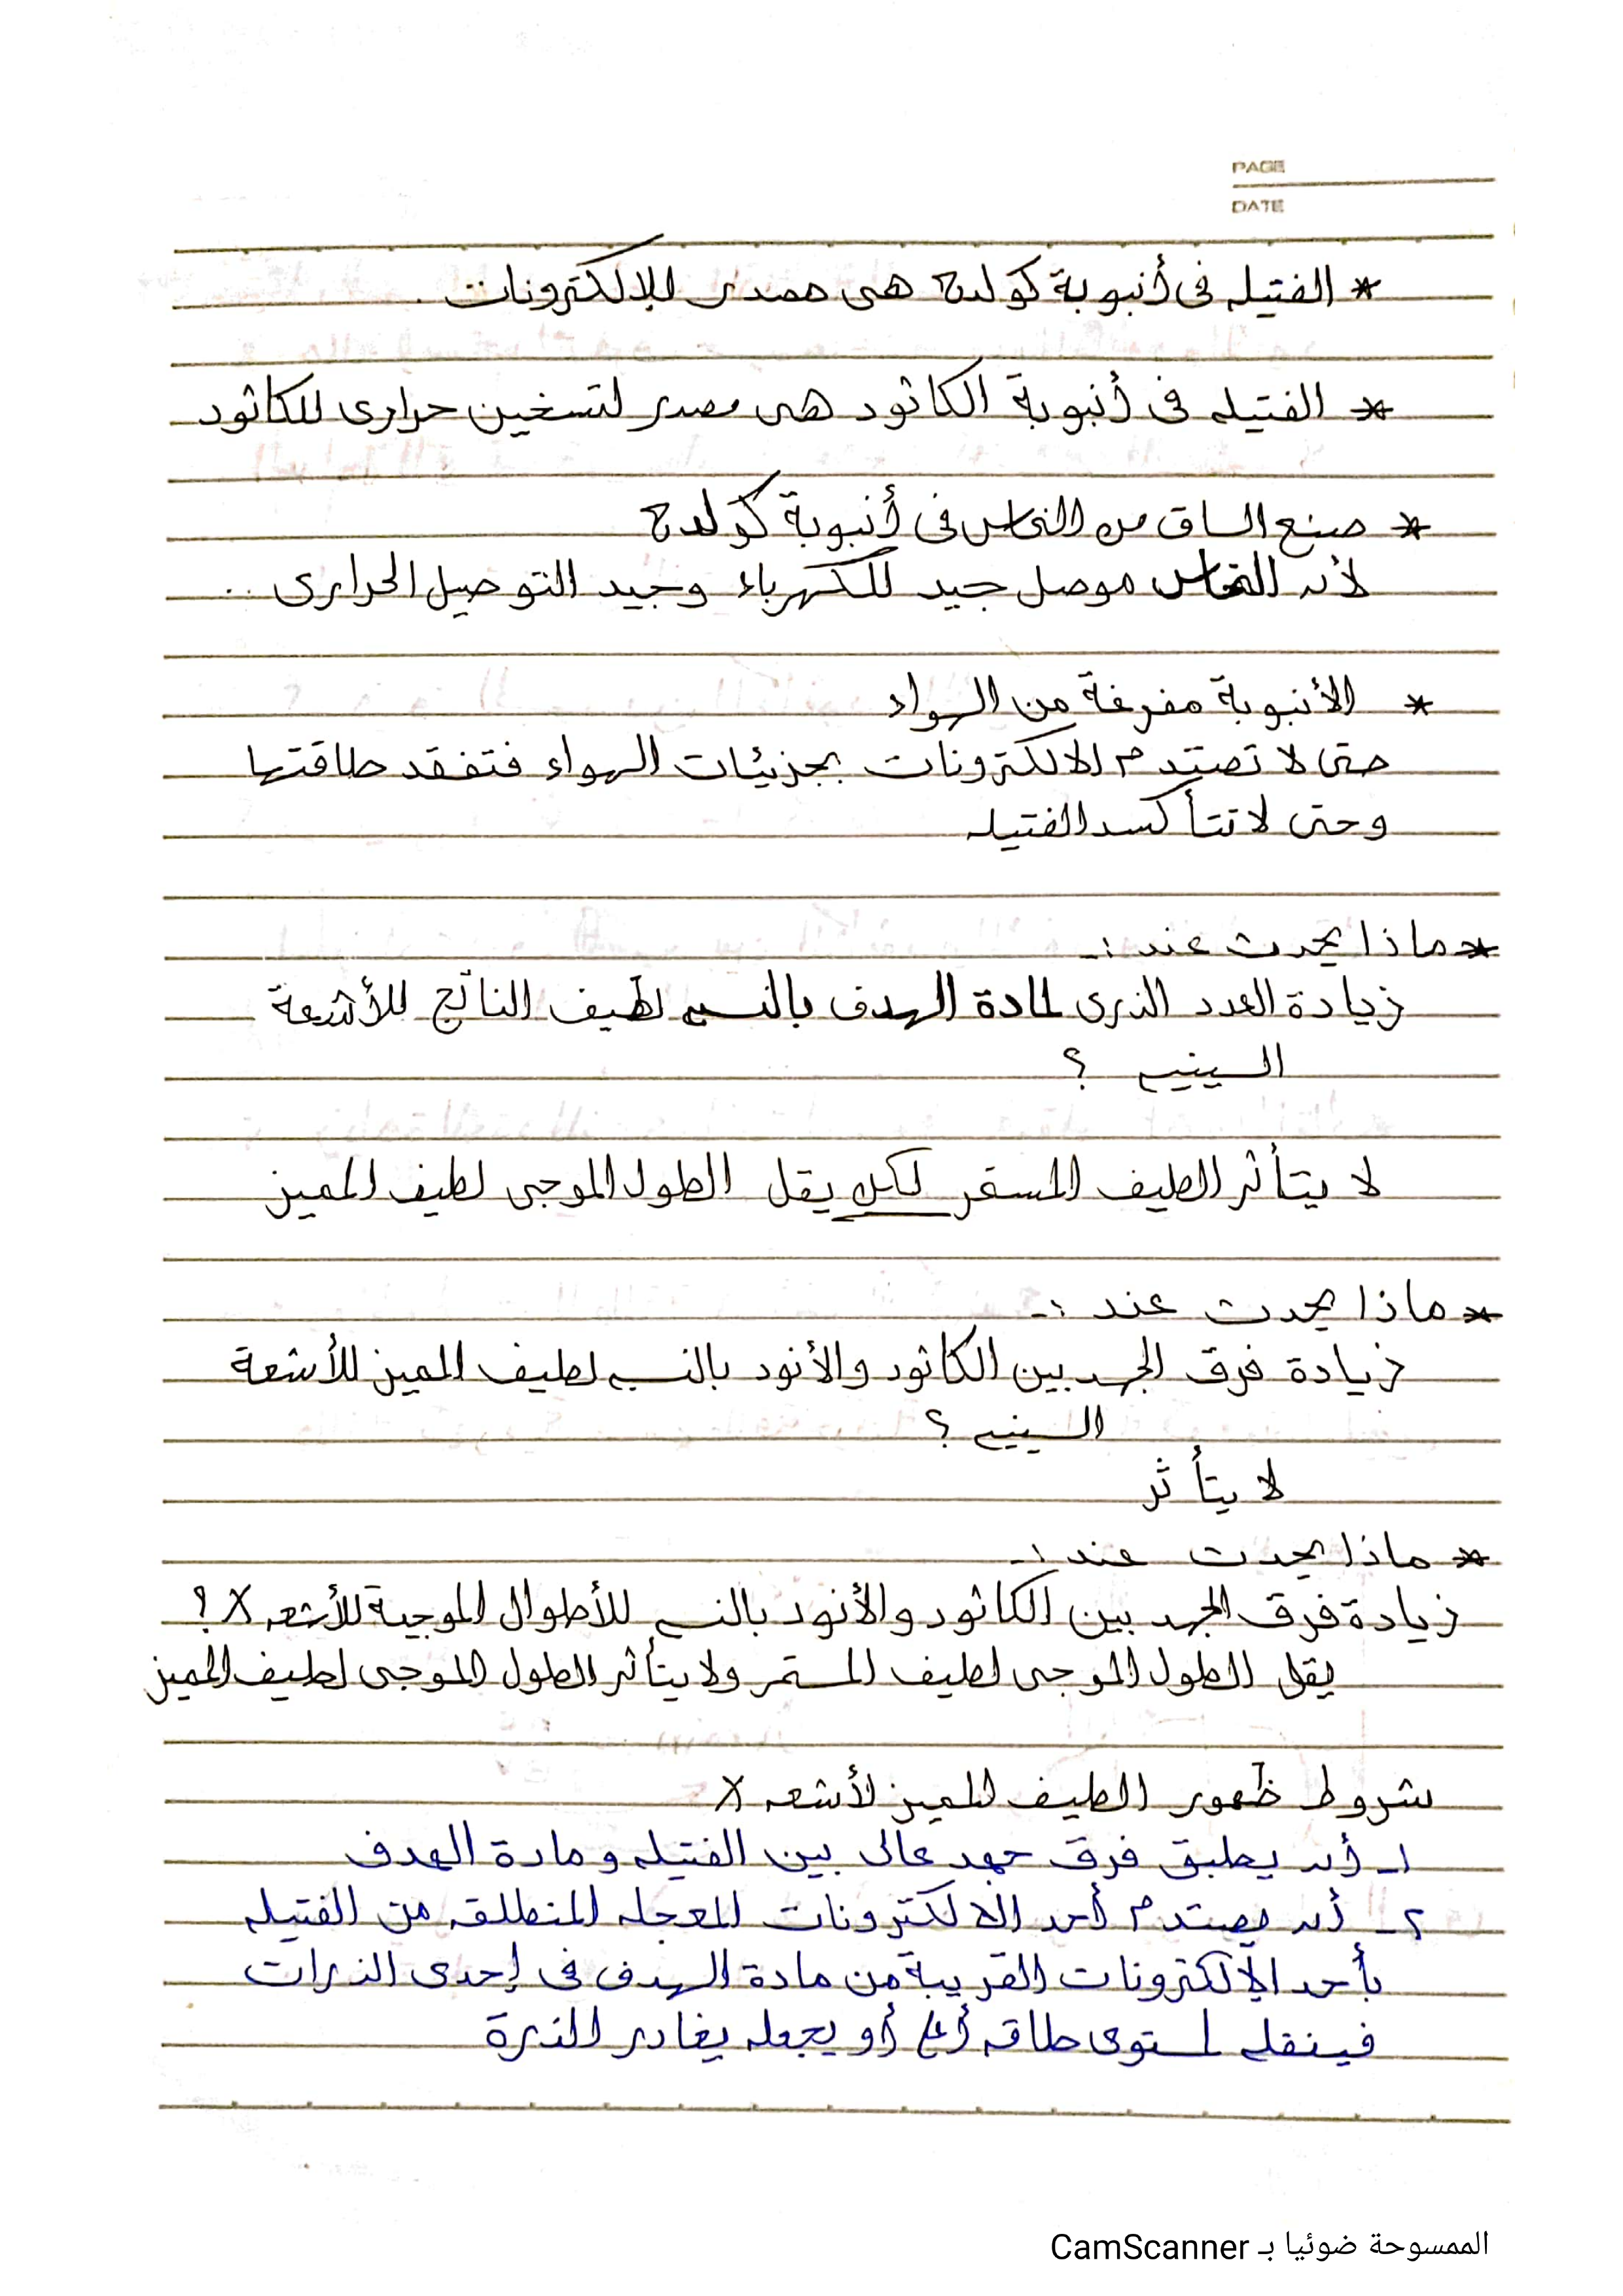 PAGE
DATE
* الفتيله فى أنبوبة كولدج هى مصدر للإلكترونات .
* الفتيله فى أنبوبة الكاثود هى مصدر لتسخين حرارى للكاثود
* صنع الساق من النحاس فى أنبوبة كولدج
لأن النحاس موصل جيد للكهرباء وجيد التوصيل الحرارى ..
* الأنبوبة مفرغة من الهواء
حتى لا تصتدم الالكترونات بجزيئات الهواء فتفقد طاقتها
وحتى لا تتأكسد الفتيله
* ماذا يحدث عند :-
زيادة العدد الذرى لمادة الهدف بالنسبه لطيف الناتج للأشعة
السينيه ؟
لا يتأثر الطيف المستمر لكن يقل الطول الموجى لطيف المميز
* ماذا يحدث عند :-
زيادة فرق الجهد بين الكاثود والأنود بالنسبه لطيف المميز للأشعة
السينيه ؟
لا يتأثر
* ماذا يحدث عند :-
زيادة فرق الجهد بين الكاثود والأنود بالنسبه للأطوال الموجية للأشعه X ؟
يقل الطول الموجى لطيف المستمر ولا يتأثر الطول الموجى لطيف المميز
شروط ظهور الطيف المميز لأشعه X
١- أن يطبق فرق جهد عالى بين الفتيله ومادة الهدف
٢- أن يصتدم أحد الالكترونات المعجله المنطلقه من الفتيله
بأحد الإلكترونات القريبة من مادة الهدف فى إحدى الذرات
فينقله لمستوى طاقه أعلى أو يجعله يغادر الذرة
الممسوحة ضوئيا بـ CamScanner